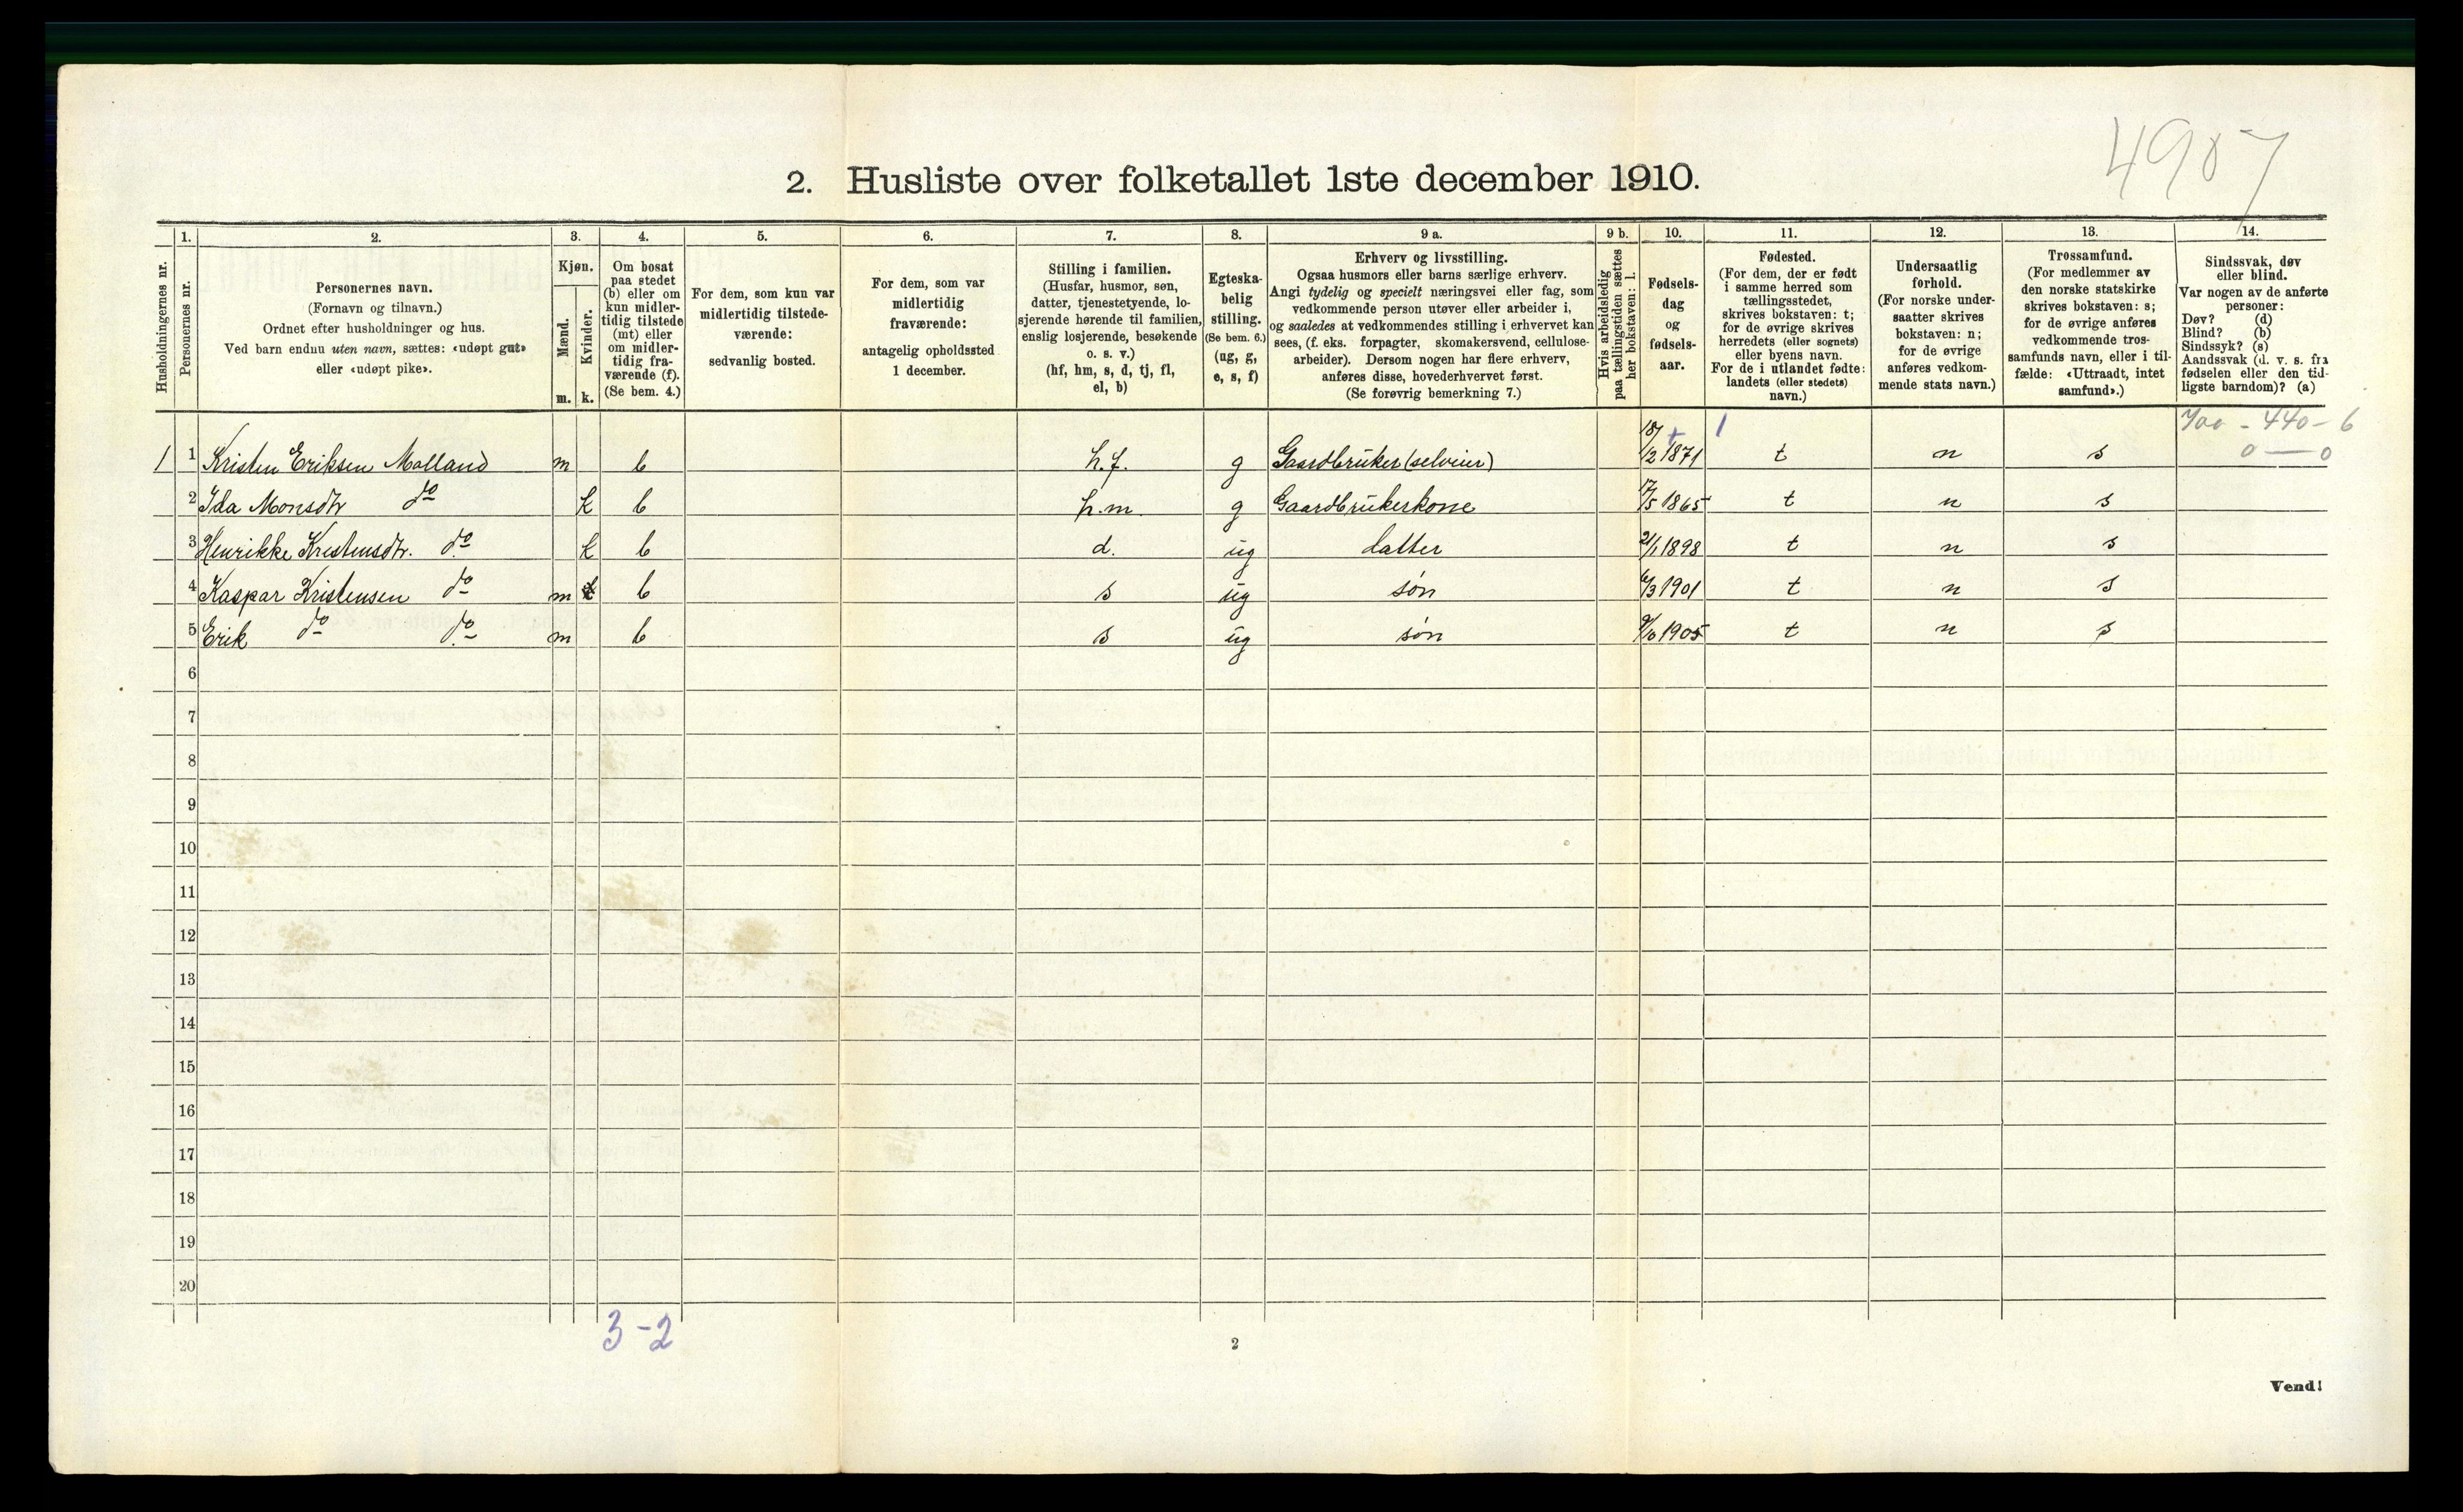 4907
2. Husliste over folketallet 1ste december 1910.
Husholdningernes nr.
1.
Personernes nr.
2.
Personernes navn.
(Fornavn og tilnavn.)
Ordnet efter husholdninger og hus.
Ved barn endnu uten navn, sættes: «udøpt gut»
eller «udøpt pike».
3.
Kjøn.
Mænd.
Kvinder.
m. k.
4.
Om bosat
paa stedet
(b) eller om
kun midler-
tidig tilstede
(mt) eller
om midler-
tidig fra-
værende (f).
(Se bem. 4.)
5.
For dem, som kun var
midlertidig tilstede-
værende:
sedvanlig bosted.
6.
For dem, som var
midlertidig
fraværende:
antagelig opholdssted
1 december.
7.
Stilling i familien.
(Husfar, husmor, søn,
datter, tjenestetyende, lo-
sjerende hørende til familien,
enslig losjerende, besøkende
o. s. v.)
(hf, hm, s, d, tj, fl,
el, b)
8.
Egteska-
belig
stilling.
(Se bem. 6.)
(ug, g,
e, s, f)
9 a.
Erhverv og livsstilling.
Ogsaa husmors eller barns særlige erhverv.
Angi tydelig og specielt næringsvei eller fag, som
vedkommende person utøver eller arbeider i,
og saaledes at vedkommendes stilling i erhvervet kan
sees, (f. eks. forpagter, skomakersvend, cellulose-
arbeider). Dersom nogen har flere erhverv,
anføres disse, hovederhvervet først.
(Se forøvrig bemerkning 7.)
9 b.
Hvis arbeidsledig
paa tællingstiden sættes
her bokstaven: l.
10.
Fødsels-
dag
og
fødsels-
aar.
11.
Fødested.
(For dem, der er født
i samme herred som
tællingsstedet,
skrives bokstaven: t;
for de øvrige skrives
herredets (eller sognets)
eller byens navn.
For de i utlandet fødte:
landets (eller stedets)
navn.)
12.
Undersaatlig
forhold.
(For norske under-
saatter skrives
bokstaven: n;
for de øvrige
anføres vedkom-
mende stats navn.)
13.
Trossamfund.
(For medlemmer av
den norske statskirke
skrives bokstaven: s;
for de øvrige anføres
vedkommende tros-
samfunds navn, eller i til-
fælde: «Uttraadt, intet
samfund».)
14.
Sindssvak, døv
eller blind.
Var nogen av de anførte
personer:
Døv? (d)
Blind? (b)
Sindssyk? (s)
Aandssvak (d. v. s. fra
fødselen eller den tid-
ligste barndom)? (a)
1
700 - 440 - 6
0 — 0
1 1 Kristen Eriksen Molland m b h.f. g Gaardbruker (selveier) 18/2 1871 t n s
2 Ida Monsdtr do k b h.m g Gaardbrukerkone 17/5 1865 t n s
3 Henrikke Kristensdtr. do k b d. ug datter 21/1 1898 t n s
4 Kaspar Kristensen do m b s ug søn 6/3 1901 t n s
5 Erik do do m b s ug søn 9/10 1905 t n s
6
7
8
9
10
11
12
13
14
15
16
17
18
19
20
3-2
2
Vend!